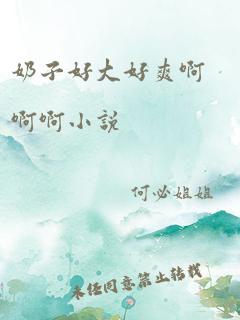 奶子好大好爽啊
啊啊小说
何必姐姐
未经同意禁止转载